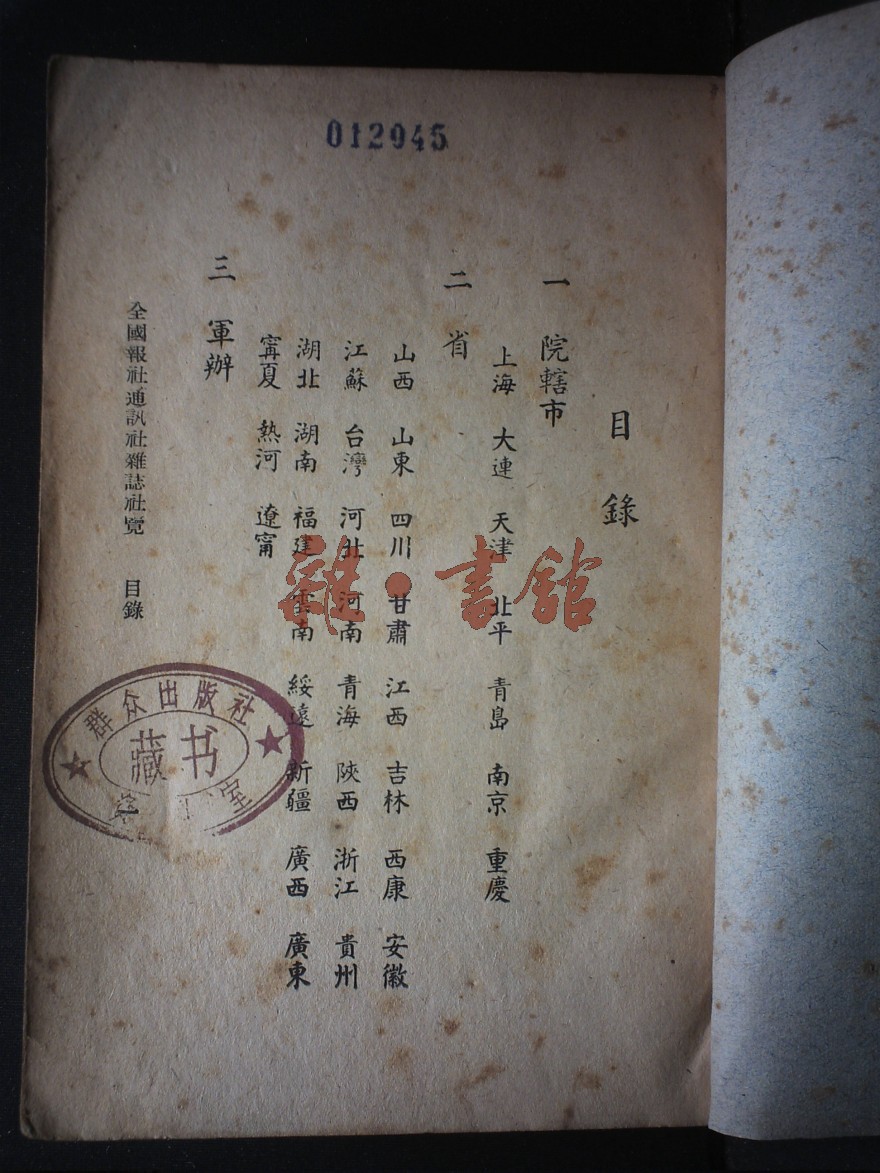 012945
目錄
一 院轄市
上海 大連 天津 北平 青島 南京 重慶
二 省
山西 山東 四川 甘肅 江西 吉林 西康 安徽
江蘇 台灣 河北 河南 青海 陝西 浙江 貴州
湖北 湖南 福建 雲南 綏遠 新疆 廣西 廣東
寗夏 熱河 遼寗
三 軍辦
全國報社通訊社雜誌社覽 目錄
雜·書館
群众出版社
藏书
室